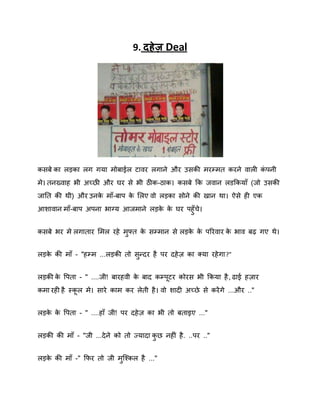 9. दहेज़ Deal
तोमर मोबाइल स्टोर
1 मोबाइल के साथ 1 मोबाइल फ्री
कसबे का लड़का लग गया मोबाईल टावर लगाने और उसकी मरम्मत करने वाली कंपनी
मे। तनख्वाह भी अच्छी और घर से भी ठीक-ठाक। कसबे कि जवान लडकियाँ (जो उसकी
जाति की थी) और उनके माँ-बाप के लिए वो लड़का सोने की खान था। ऐसे ही एक
आशावान माँ-बाप अपना भाग्य आजमाने लड़के के घर पहुँचे।
कसबे भर मे लगातार मिल रहे मुफ्त के सम्मान से लड़के के परिवार के भाव बढ़ गए थे।
लड़के की माँ - "हम्म ...लड़की तो सुन्दर है पर दहेज़ का क्या रहेगा?"
लड़की के पिता - " ....जी! बारहवी के बाद कम्पूटर कोरस भी किया है, ढाई हज़ार
कमा रही है स्कूल मे। सारे काम कर लेती है। वो शादी अच्छे से करेंगे ...और .."
लड़के के पिता - " ....हाँ जी! पर दहेज़ का भी तो बताइए ..."
लड़की की माँ - "जी ...देने को तो ज्यादा कुछ नहीं है. ..पर .."
लड़के की माँ -" फिर तो जी मुश्किल है ..."